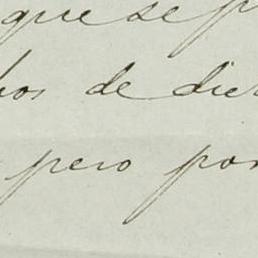 que se p
bos de die
pero por